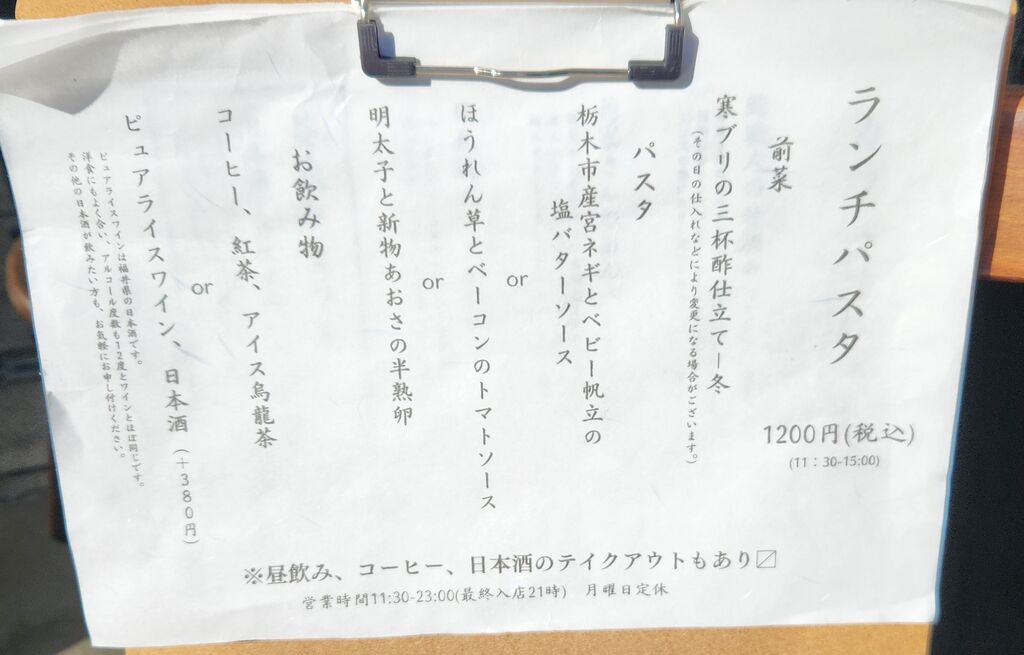 ランチパスタ
1200円(税込)
(11：30-15:00)
前菜
寒ブリの三杯酢仕立て―冬
(その日の仕入れなどにより変更になる場合がございます。)
パスタ
栃木市産宮ネギとベビー帆立の
塩バターソース
or
ほうれん草とベーコンのトマトソース
or
明太子と新物あおさの半熟卵
お飲み物
コーヒー、紅茶、アイス烏龍茶
or
ピュアライスワイン、日本酒(+380円)
ピュアライスワインは福井県の日本酒です。
洋食にもよく合い、アルコール度数も12度とワインとほぼ同じです。
その他の日本酒が飲みたい方も、お気軽にお申し付けください。
※昼飲み、コーヒー、日本酒のテイクアウトもあり〼
営業時間11:30-23:00(最終入店21時)　月曜日定休